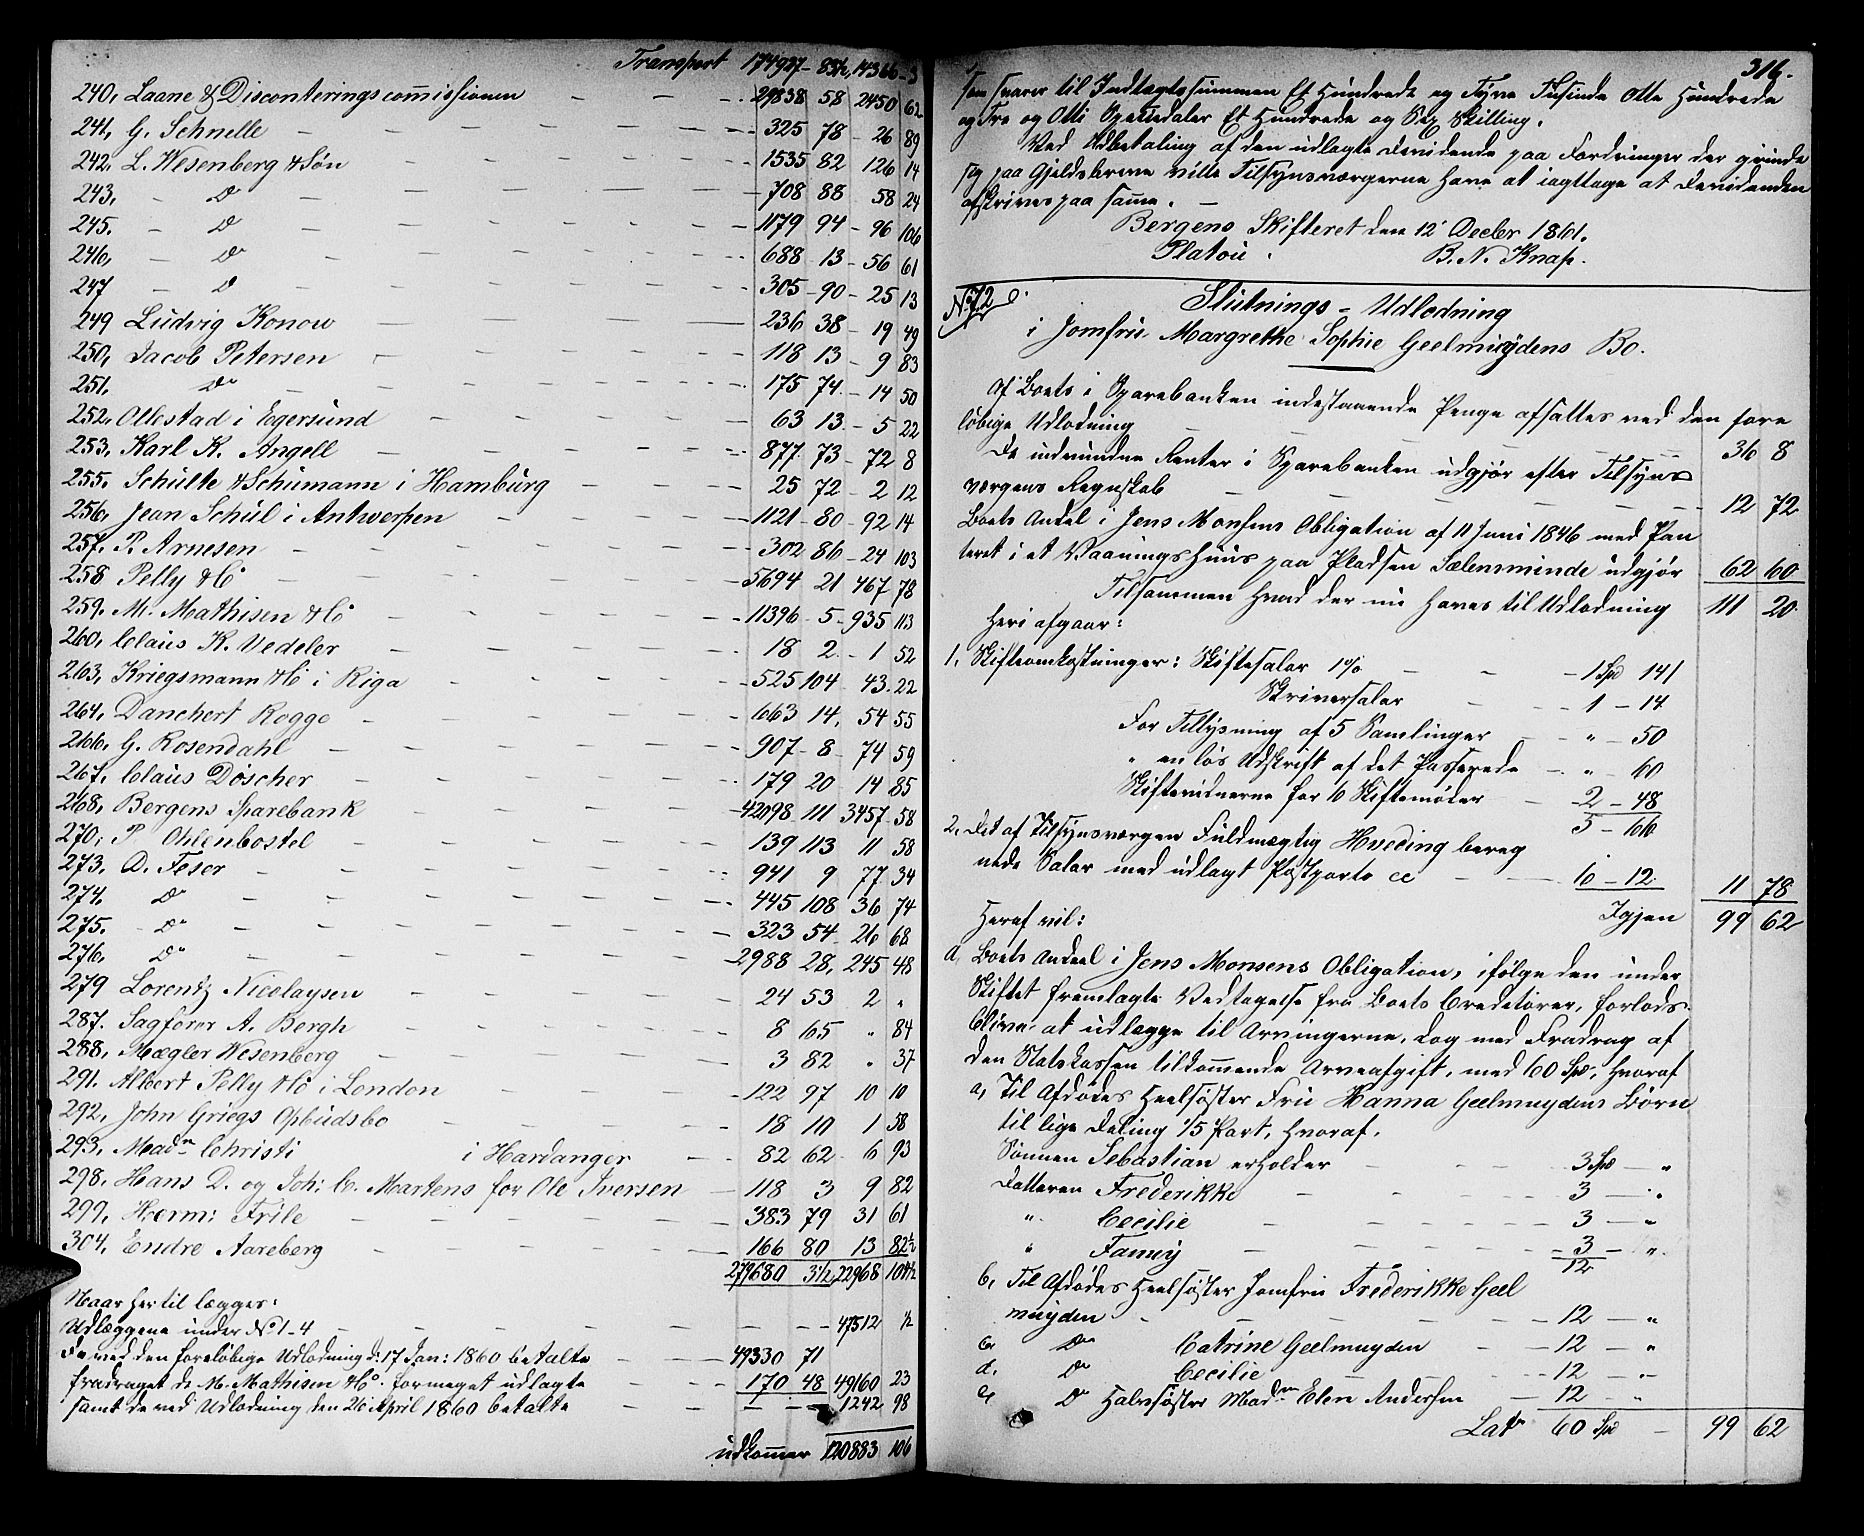 Transport 174937 - 83½, 14366 - 3
240, Laane & Disconteringscommissionen - - - 29838 58 2450 62
241, G. Schnelle - - - 325 78 - 26 89
242, L. Wesenberg & Søn - - - 1535 82 126 14
243, - Do - - - 708 88 58 24
245. - Do - - - 1179 94 - 96 106
246, - Do - - - 688 - 13 - 56 61
247 - Do - - - 305 - 90 - 25 13
249 Ludvig Konow - - - 236 38 - 19 49
250, Jacob Petersen - - - 118 13 - 9 83
251. Do - - - 175 74 - 14 50
252, Ollestad i Egersund - - - 63 13 - 5 22
253, Karl K. Angell - - - 877 73 - 72 8
255. Schulte & Schumann i Hamburg - - - 25 72 - 2 12
256, Jean Schul i Antwerpen - - - 1121 - 80 - 92 14
257. P. Arnesen - - - 302 86 - 24 103
258 Pelly & Co - - - 5694 21 467 78
259. M. Mathisen & Co - - - 11396 - 5 - 935 113
260, Claus K. Vedeler - - - 18 2 - 1 52
263, Kriegsmann & Co i Riga - - - 525 104 43. 22
264, Danchert Rogge - - - 663 14, 54 55
266, G. Rosendahl - - - 907 - 8 - 74 59
267, Claus Döscher - - - 179 20 14 85
268, Bergens Sparebank - - - 42098 111 3457 58
270, P. Ohlenbostel - - - 139 113 11 58
273. D. Feser - - - 941 9 77 34
274. Do - - - 445 108 36 74
275. Do - - - 323 54 - 26 68
276, Do - - - 2988 28, 245 48
279 Lorentz Nicolaysen - - - 24 53 2 "
287. Sagfører A. Bergh - - - 8 65 " 84
288, Mægler Wesenberg - - - 3 82 " 37
291. Albert Pelly & Co i London - - - 122 97 10 10
292, John Griegs Opbudsbo - - - 18 10 1 58
293, Madm Christi i Hardanger - - - 82 62 6 93
298, Hans D. og Joh: C. Martens for Ole Iversen - 118 3 9 82
299, Herm: Friele - - - 383 79 31 61
304, Endre Aareberg - - - 166 80 13 82½
279680 3½ 22968 104½
Naar hertil lægges:
Udlæggene under No 1-4 - - - 47512 ½
De ved den foreløbige Udlodning d: 17 Jan: 1860 betalte - - 49330 71
fradraget de M. Mathisen & Co. formeget udlagte - - 170 48 49160 23
samt de ved Udlodning den 26 April 1860 betalte - - - 1242 98
udkommer 120883 106
316.
som svarer til Indtægtssummen Et Hundrede og Tyve Tusinde Otte Hundrede
og Tre og Otti Speciedaler Et Hundrede og Sex Skilling.
Ved Udbetaling af den udlagte Devidende paa Fordringer der grunde
sig paa Gjeldsbreve ville Tilsynsværgerne have at iagttage at Devidenden
afskrives paa samme. -
Bergens Skifteret den 12 Decbr 1861.
Platou. B. N. Knap.
No 72 Slutnings - Udlodning
i Jomfru Margrethe Sophie Geelmuydens Bo.
Af Boets i Sparebanken indestaaende Penge afsattes ved den fore
løbige Udlodning - - - 36 8
De indvundne Renter i Sparebanken udgjør efter Tilsyns
værgens Regnskab - - - 12 72
Boets Andel i Jens Monsens Obligation af 11 Juni 1846 med Pan
teret i et Vaaningshuus paa Pladsen Sælensminde udgjør 62 60
Tilsammen hvad der nu haves til Udlodning 111 20
Heri afgaar:
1, Skifteomkostninger: Skiftesalar 1% - - 1 Spd 141
Skriversalar - - 1 - 14
For Tillysning af 5 Samlinger - - " - 50
" en løs Udskrift af det Passerede - " - 60
Skiftevidnerne for 10 Skiftemøder - 2 - 48
5 - 66
2, Det af Tilsynsværgen Fuldmægtig Hveding bereg
nede Salar med udlagt Postporto cc - - 6 - 12. 11 78
Igjen 99 62
Heraf vil:
A, Boets Andeel i Jens Monsens Obligation, ifølge den under
Skiftet fremlagte Vedtagelse fra Boets Creditorer, forlods
blive at udlægge til Arvingerne, dog med Fradrag af
den Statskassen tilkommende Arveafgift, med 60 Spd, hvoraf
a, Til Afdødes Heelsøster Fru Hanna Geelmuydens Børn
til lige Deling 1/5 Part, hvoraf.
Sønnen Sebastian erholder - - 3 Spd - "
Datteren Frederikke - - 3 - "
" Cecilie - - - 3 - "
" Fanny - - - 3 - "
12
b, Til Afdødes Heelsøster Jomfru Frederikke Geel
muyden - - - 12 - "
c, Do Catrine Geelmuyden - - 12 - "
d, Do Cecilie - - - 12 - "
e, Do Halvsøster Madm Elen Andersen - 12 "
Lats 60 Spd - 99 62